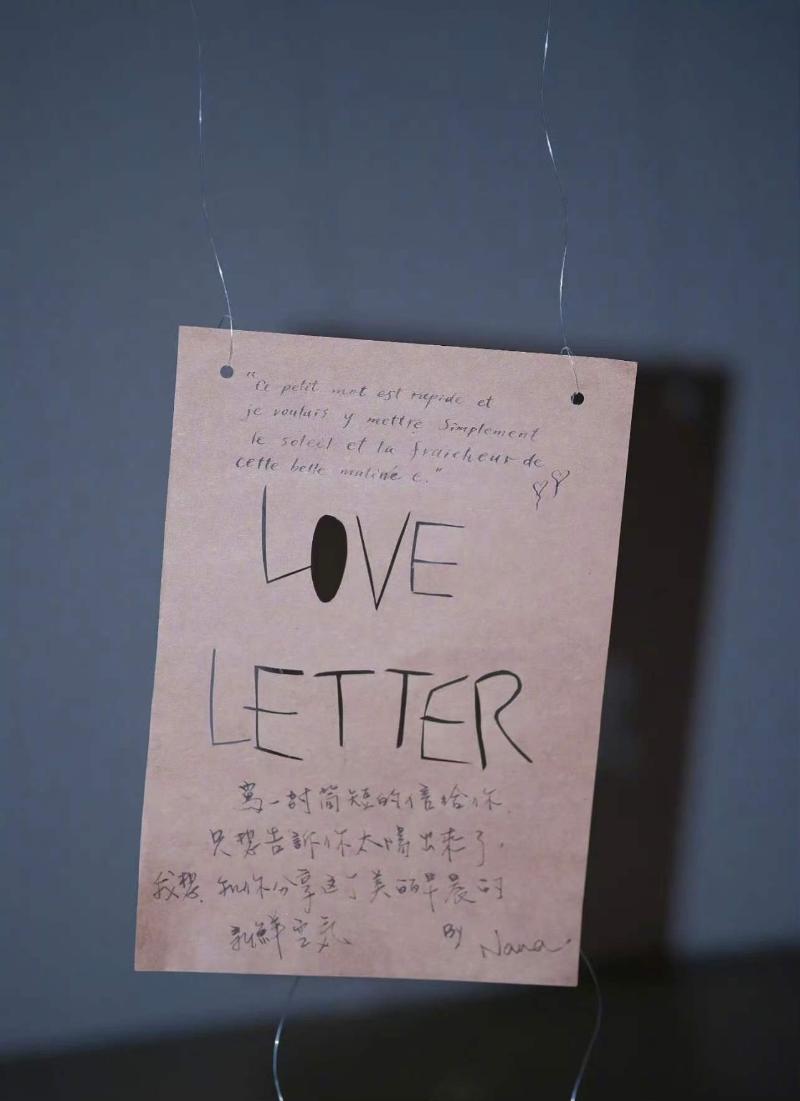 "Ce petit mot est rapide et
je voulais y mettre Simplement
le soleil et la fraicheur de
cette belle matiné e."
LOVE
LETTER
寫一封简短的信给你.
只想告訴你太陽出来了.
我想.和你分享这个美丽早晨的
新鮮空氣
By Nana.